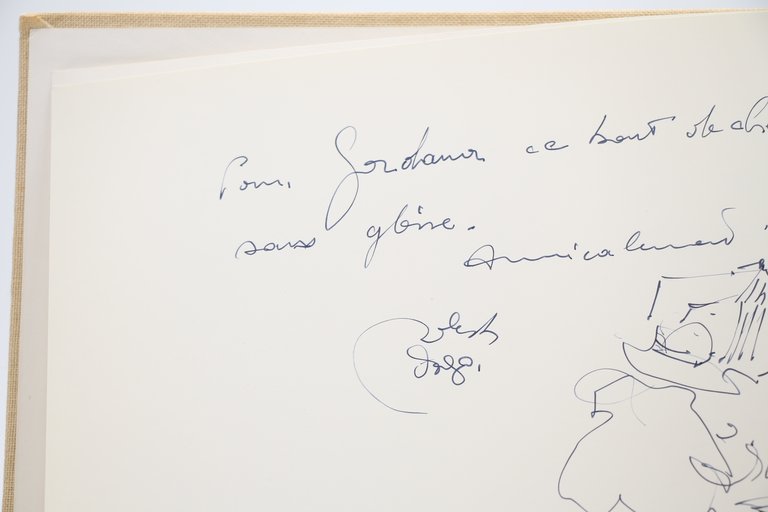 Pour Gordana ce bout de
sans gloire.
Amicalement